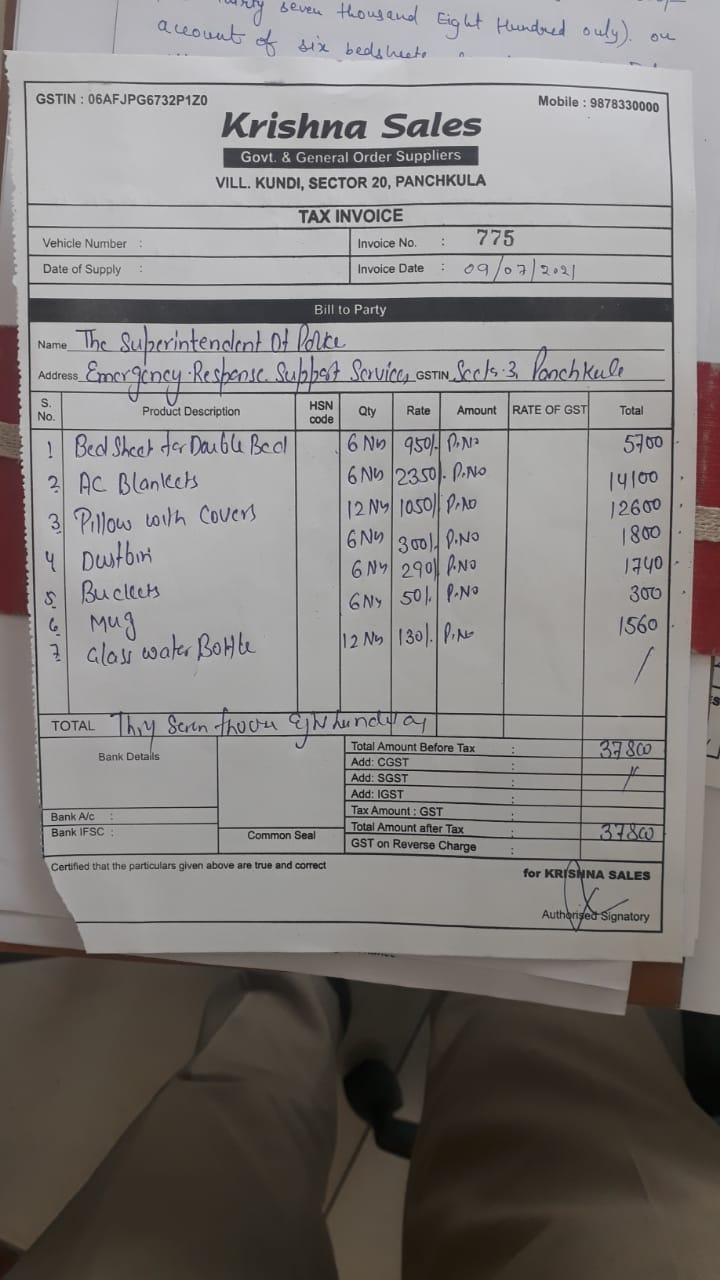 seven thousand Eight Hundred only). on
account of six bedsheets
GSTIN : 06AFJPG6732P1Z0
Mobile : 9878330000
Krishna Sales
Govt. & General Order Suppliers
VILL. KUNDI, SECTOR 20, PANCHKULA
TAX INVOICE
Vehicle Number :
Invoice No. : 775
Date of Supply :
Invoice Date : 09/07/2021
Bill to Party
Name The Superintendent Of Police
Address Emergency Response Support Services, GSTIN Sects. 3, Panchkula
S. No. Product Description HSN code Qty Rate Amount RATE OF GST Total
1 Bed Sheet for Double Bed 6 Ns 950/- P.No 5700
2 AC Blankets 6 Ns 2350/- P.No 14100
3 Pillow with Covers 12 Ns 1050/- P.No 12600
4 Dustbin 6 Ns 300/- P.No 1800
5 Buckets 6 Ns 290/- P.No 1740
6 Mug 6 Ns 50/- P.No 300
7 Glass water Bottle 12 Ns 130/- P.No 1560
TOTAL
Bank Details
Total Amount Before Tax : 37800
Add: CGST :
Add: SGST :
Add: IGST :
Bank A/c :
Tax Amount : GST :
Bank IFSC :
Common Seal
Total Amount after Tax : 37800
GST on Reverse Charge :
Certified that the particulars given above are true and correct
for KRISHNA SALES
Authorised Signatory